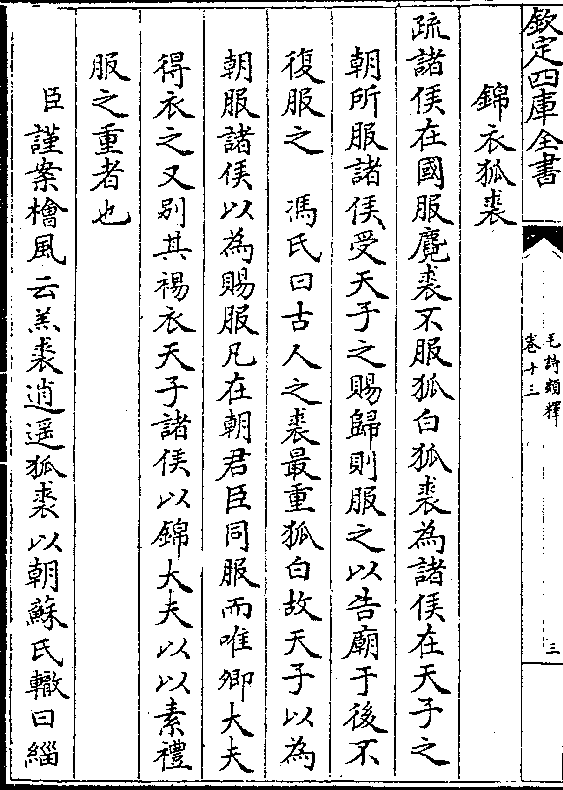 欽定四庫全書
毛詩類釋
卷十三
三
錦衣狐裘
疏諸侯在國服麑裘不服狐白狐裘為諸侯在天子之
朝所服諸侯受天子之賜歸則服之以告廟于後不
復服之　馮氏曰古人之裘最重狐白故天子以為
朝服諸侯以為賜服凡在朝君臣同服而唯卿大夫
得衣之又別其裼衣天子諸侯以錦大夫以以素禮
服之重者也
臣謹案檜風云羔裘逍遥狐裘以朝蘇氏轍曰緇